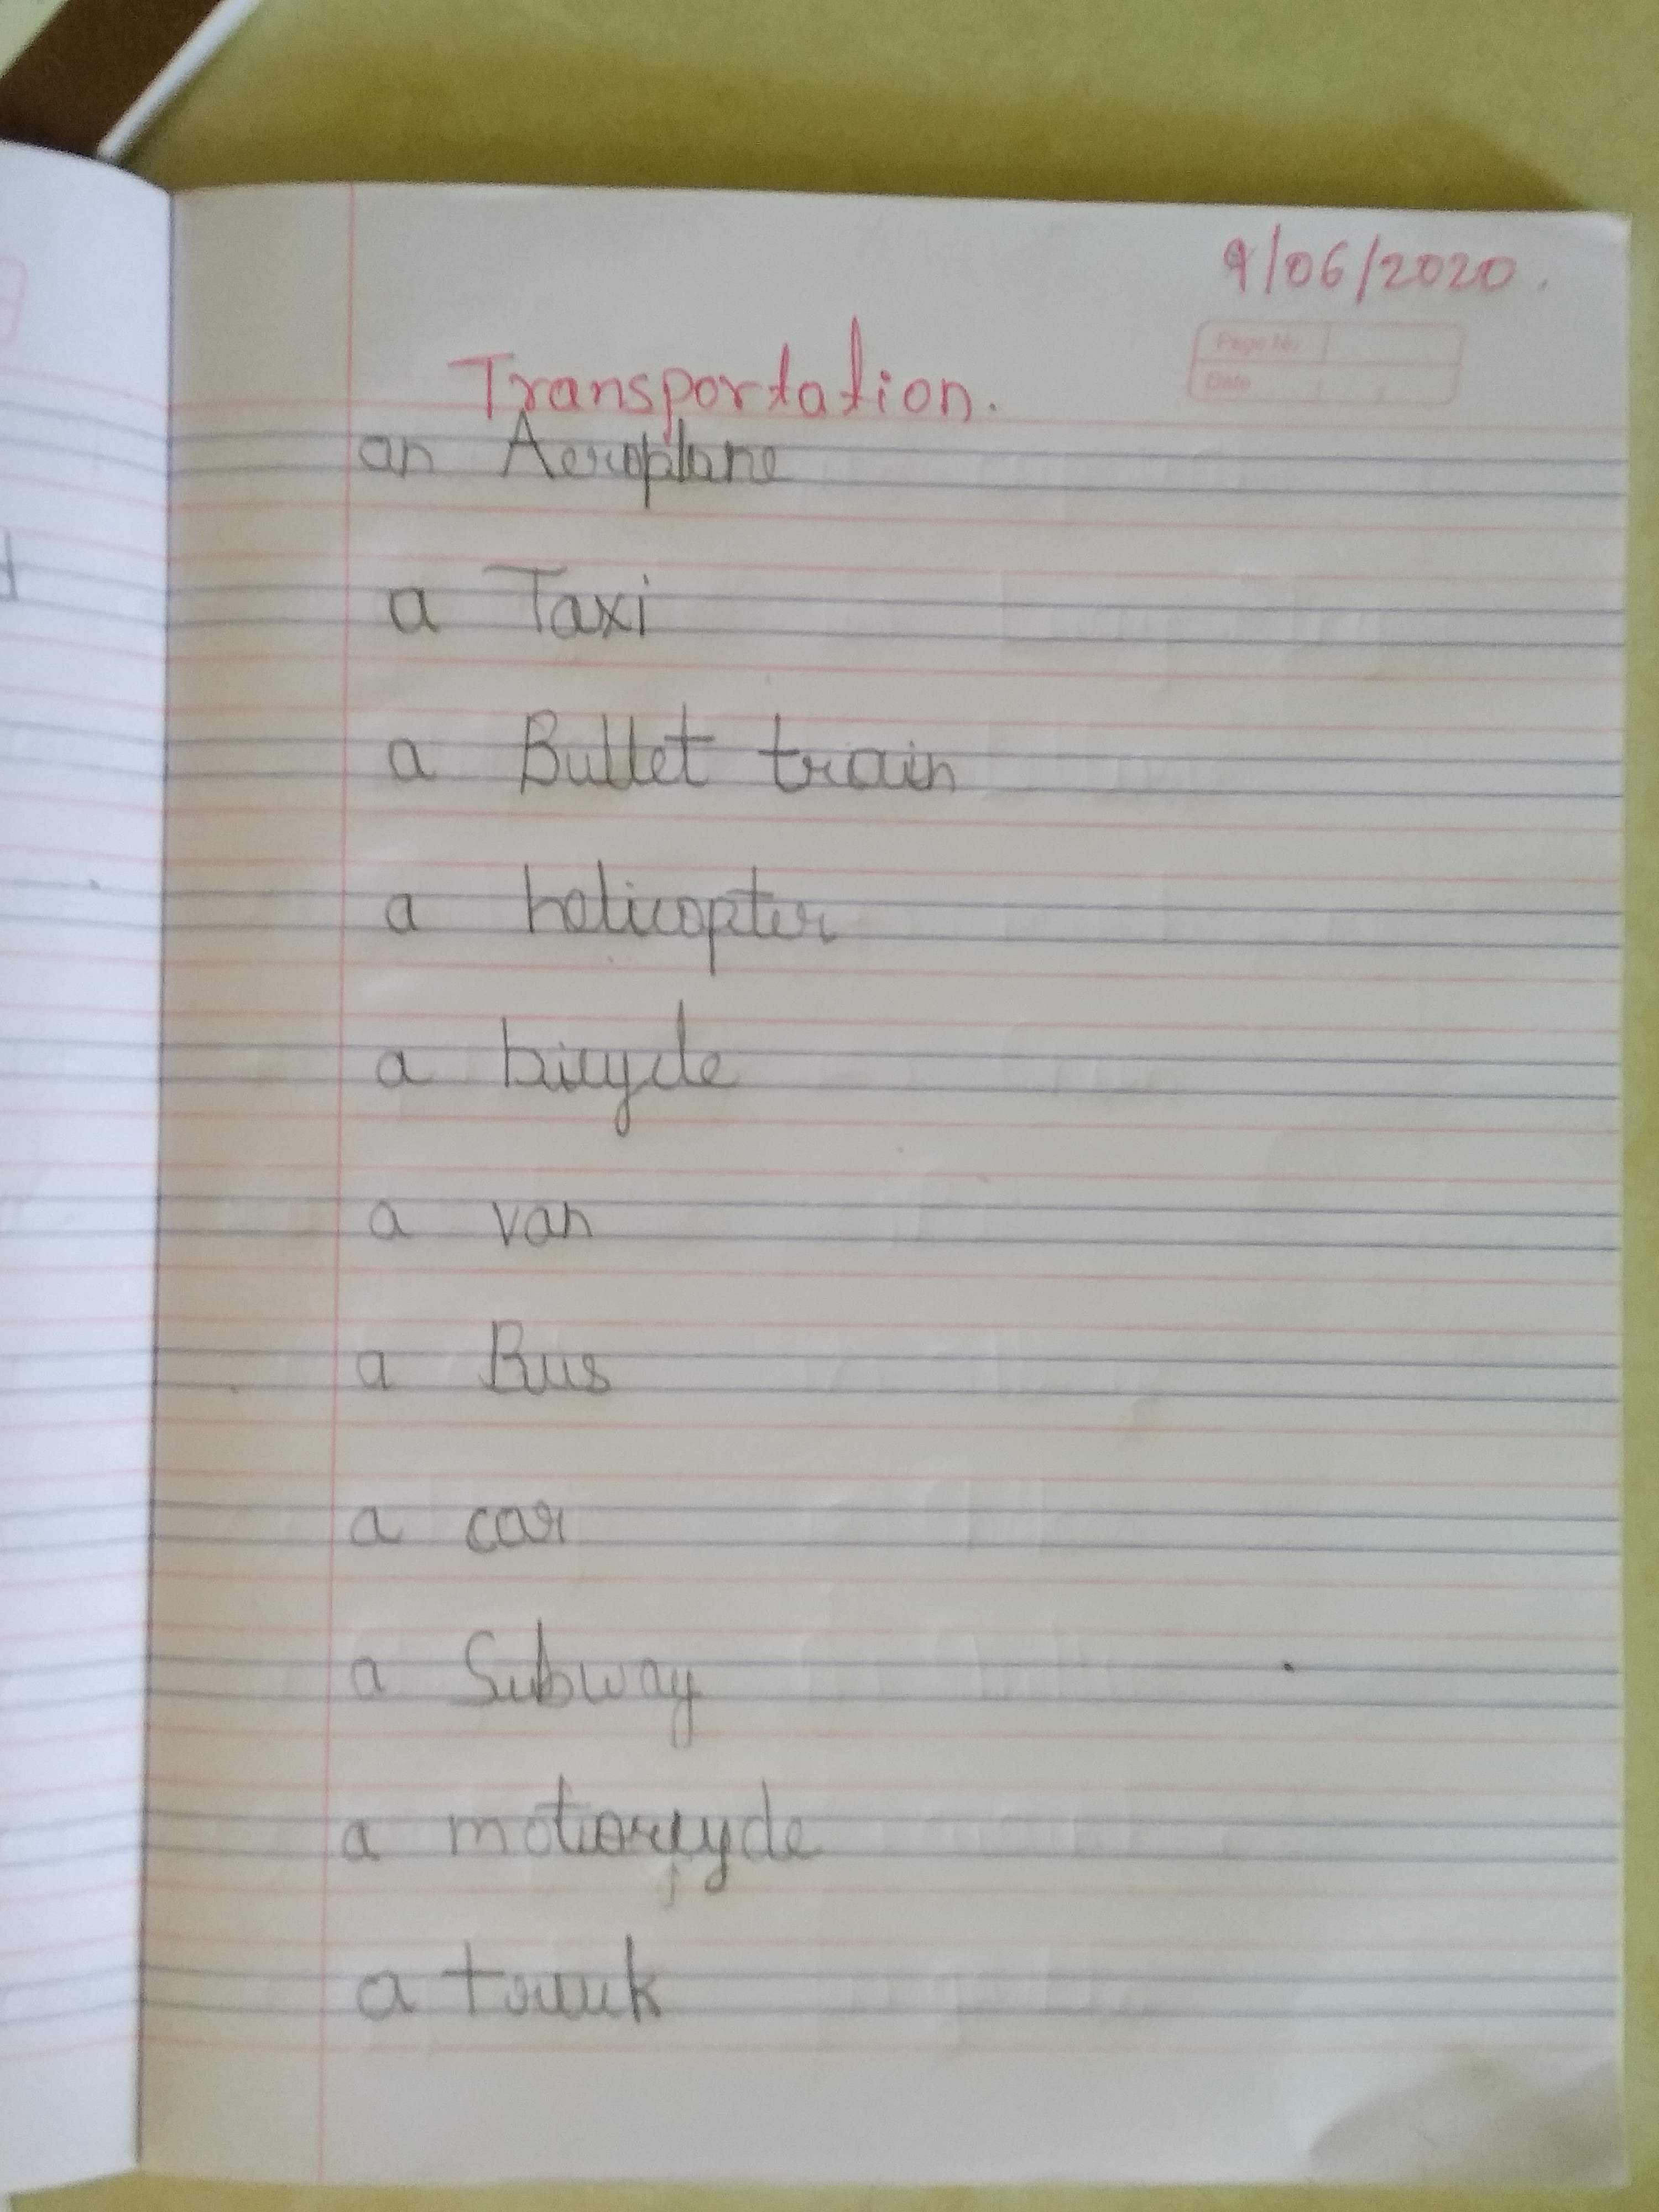 9/06/2020.
Page No.
Date
Transportation.
an Aeroplane
a Taxi
a Bullet train
a helicopter
a bicycle
a van
a Bus
a car
a Subway
a motorcycle
a truck